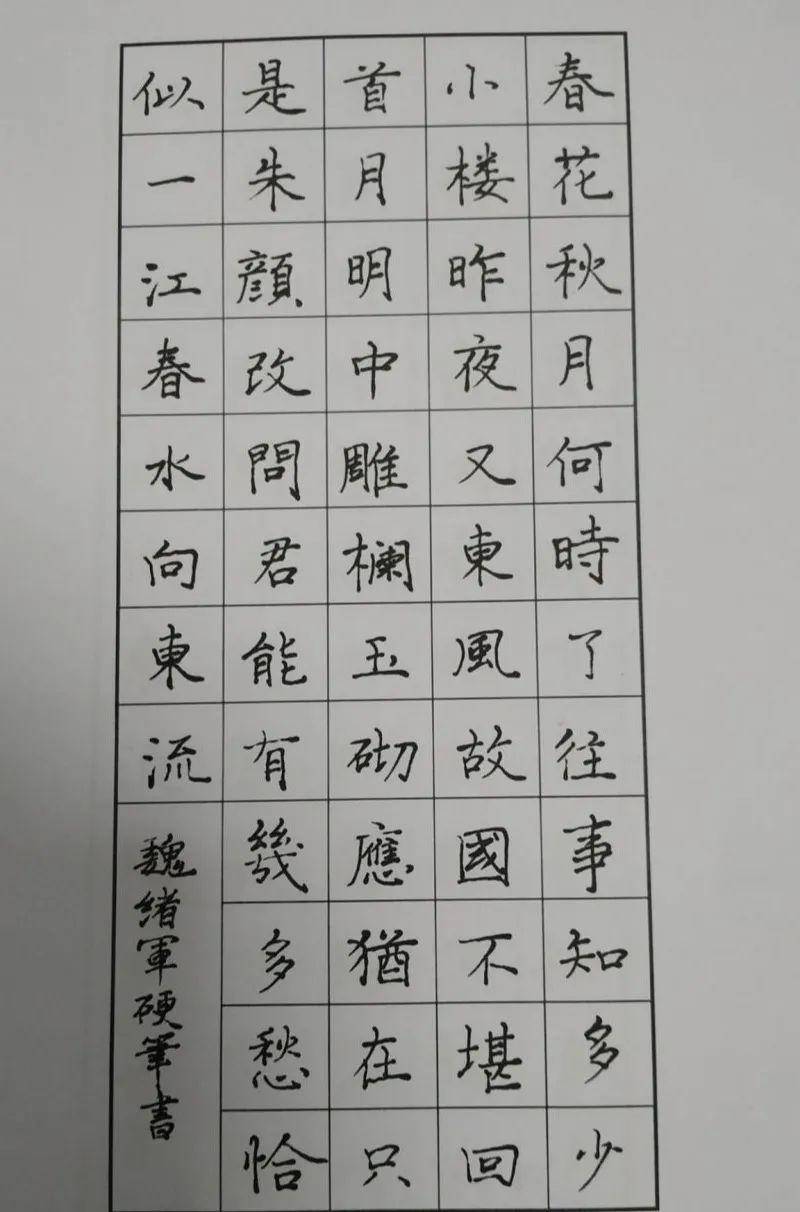 春花秋月何時了往事知多少
小楼昨夜又東風故國不堪回
首月明中雕欄玉砌應猶在只
是朱顔改問君能有幾多愁恰
似一江春水向東流
魏緒軍硬筆書